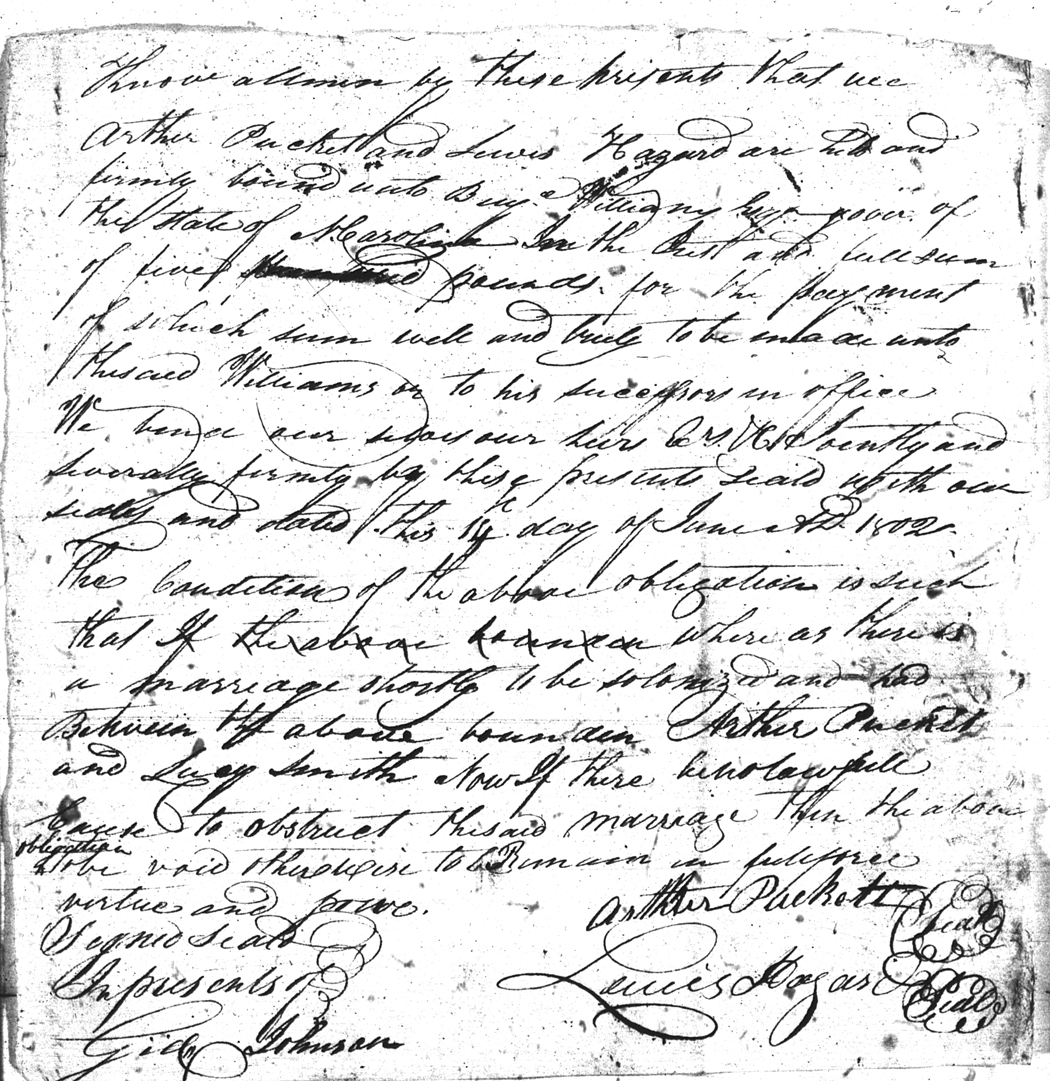 Know allmen by these presents that we
Arther Pucket and Lewis Hazard are held and
firmly bound unto Benj.a Williams Esqr gover. of
the State of N.Carolina In the Just and full sum
of five hundred pounds. for the payment
of which sum well and truly to be made unto
thesaid Williams or to his successors in office
We bind our selves our heirs &c. Jointly and
severally firmly by these presents seald with our
seals and dated this 14 day of June AD. 1802
The Condition of the above obligation is such
that If the above bounden where as there is
a marriage shortly to be solonized and had
Between the above bounden Arther Pucket
and Lucy Smith Now If there be no lawfull
Cause to obstruct thesaid marriage then the above
obligation
to be void otherwise to be Remain in full force
virtue and powe.
Segned Seald
In presents of
Arther Puckett Seal
Lewis Hazard Seal
Gid Johnson